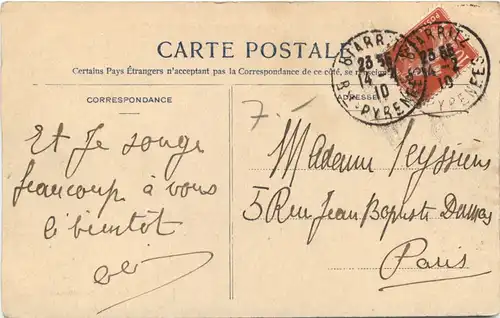 CARTE POSTALE
Certains Pays Étrangers n'acceptant pas la Correspondance de ce côté, se
CORRESPONDANCE
ADRESSE
BIARRITZ
23 35
14 -4
10
PYRENEES
BIARRITZ
23 35
10
PYRENEES
7.-
Et Je songe
beaucoup à vous
à bientôt
Madame Teyssière
5 Rue Jean Baptiste Dumas
Paris